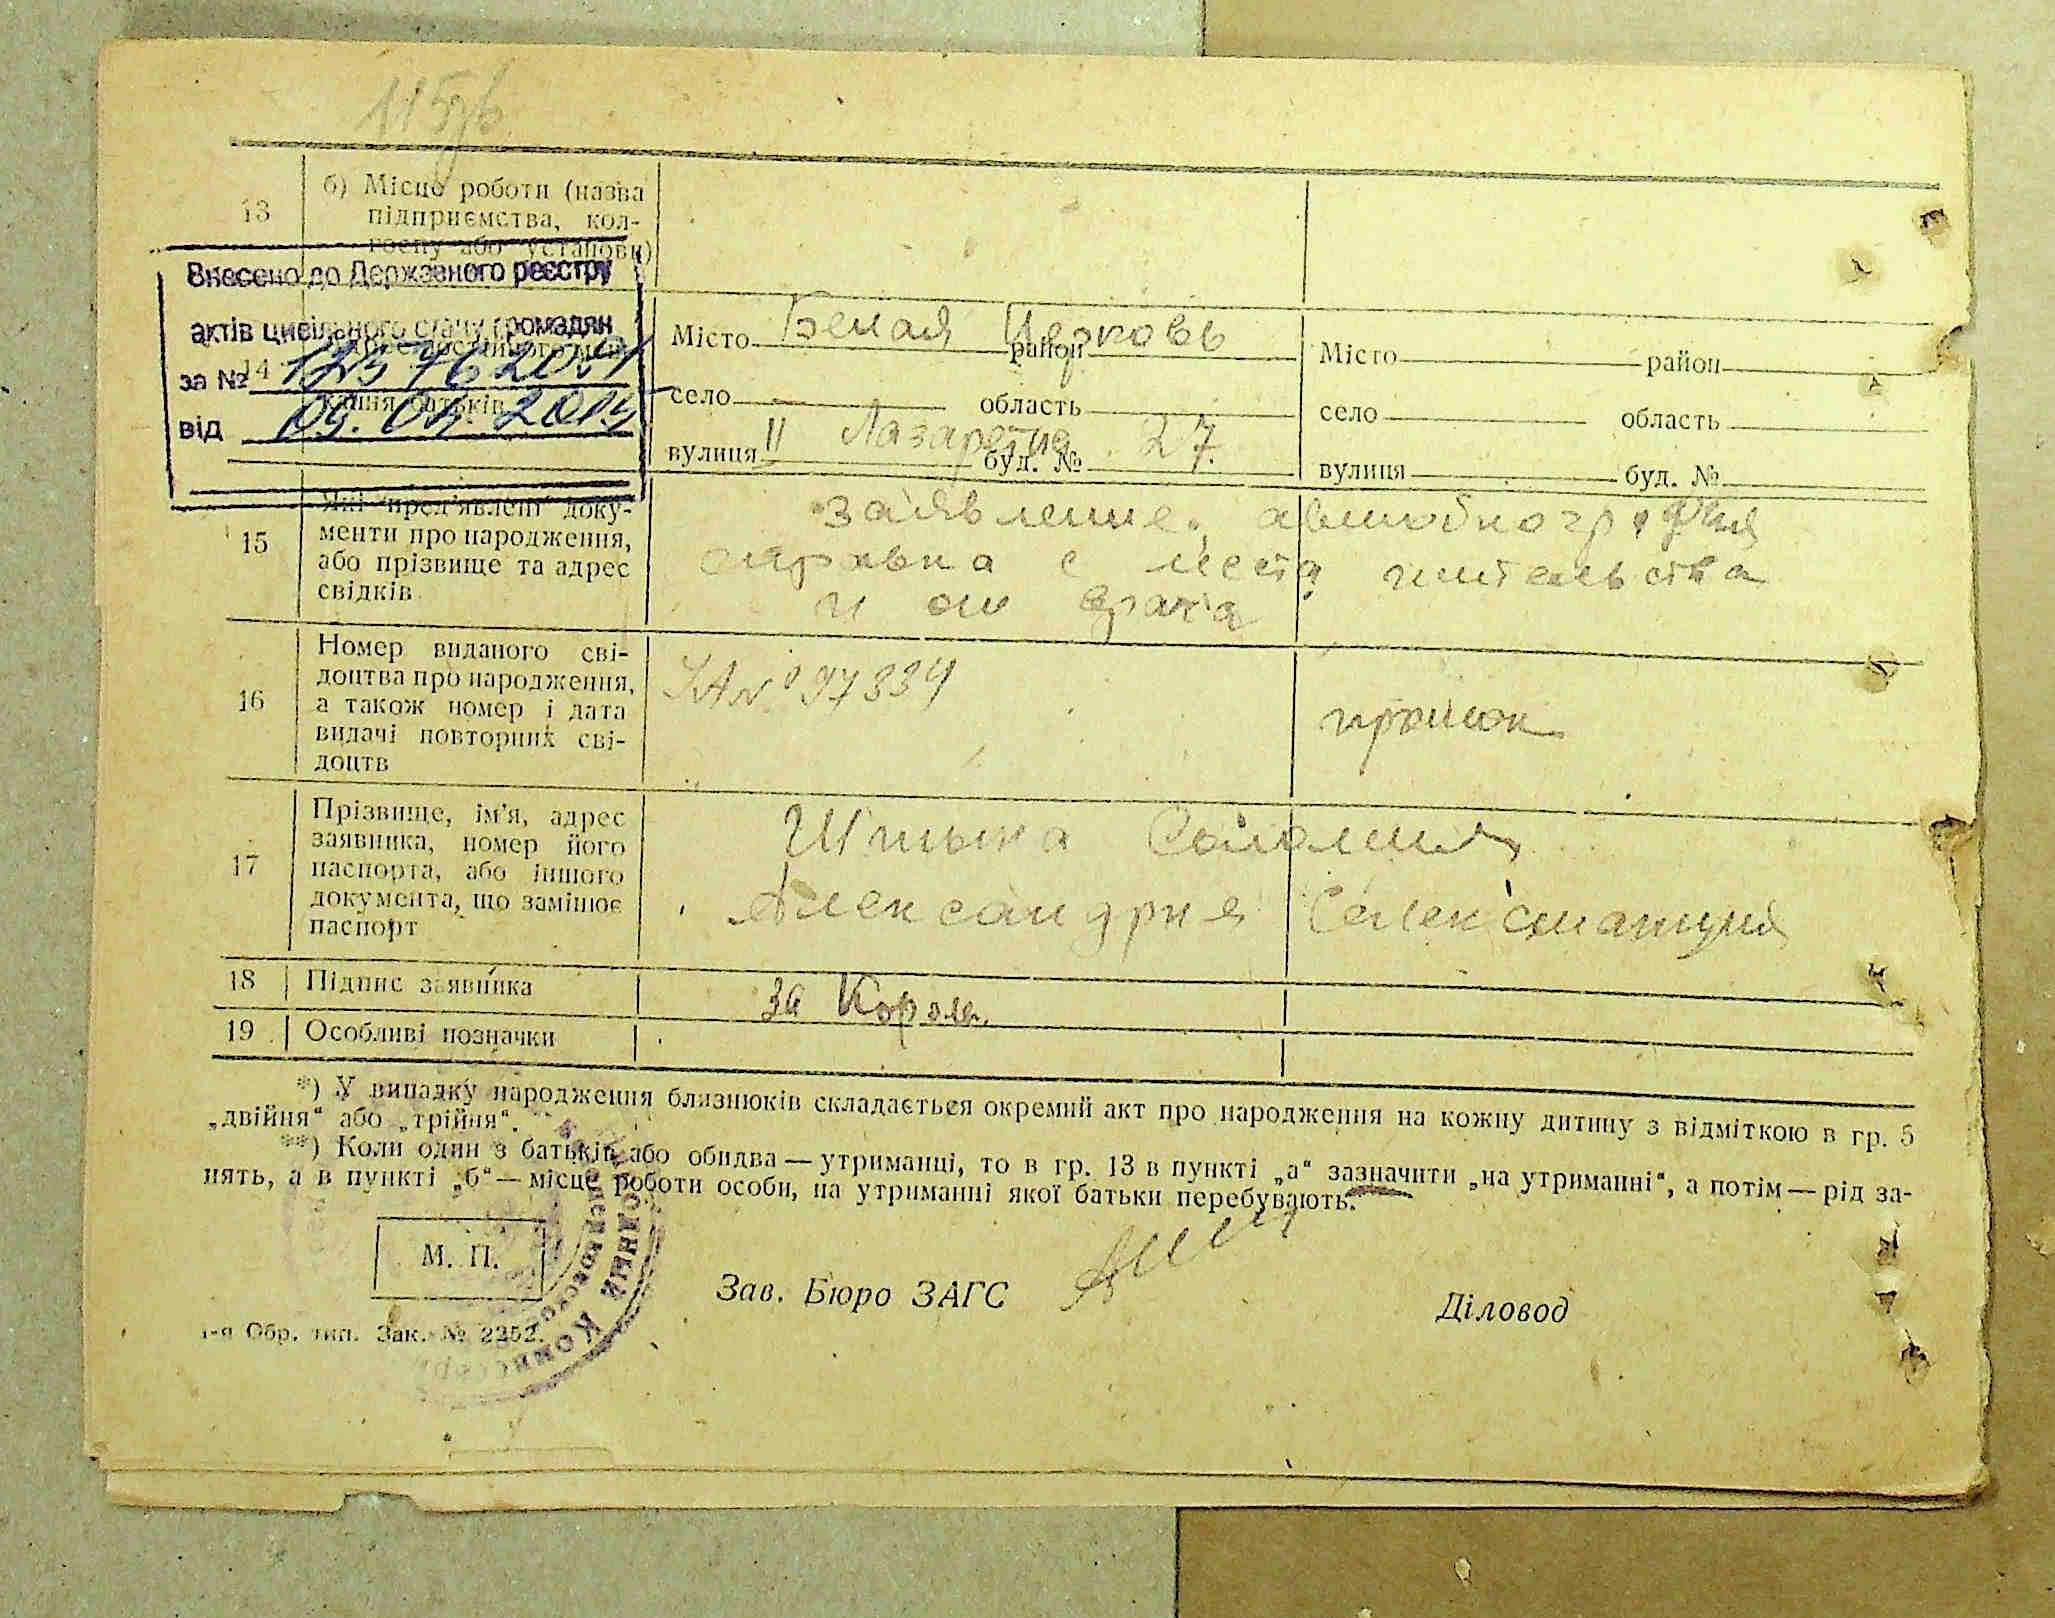 13
б) Місце роботи (назва
підприємства, кол-
госпу або установи)
Внесено до Державного реєстру
актів цивільного стану громадян
за №
від
14
кання батьків
Місто Белая Церковь район
село область
вулиця II Лазаретна буд. № 27.
Місто район
село область
вулиця буд. №
15
Які пред'явлені доку-
менти про народження,
або прізвище та адрес
свідків
заявление, автобиография
справка с места жительства
и от врача
16
Номер виданого сві-
доцтва про народження,
а також номер і дата
видачі повторних сві-
доцтв
№ 97334
17
Прізвище, ім'я, адрес
заявника, номер його
паспорта, або іншого
документа, що замінює
паспорт
Александрия
18
Підпис заявника
за
19
Особливі позначки
*) У випадку народження близнюків складається окремий акт про народження на кожну дитину з відміткою в гр. 5
„двійня“ або „трійня“.
**) Коли один з батьків або обидва — утриманці, то в гр. 13 в пункті „а“ зазначити „на утриманні“, а потім — рід за-
нять, а в пункті „б“ — місце роботи особи, на утриманні якої батьки перебувають.
М. П.
Зав. Бюро ЗАГС
Діловод
1-я Обр. тип. Зак. № 2252.